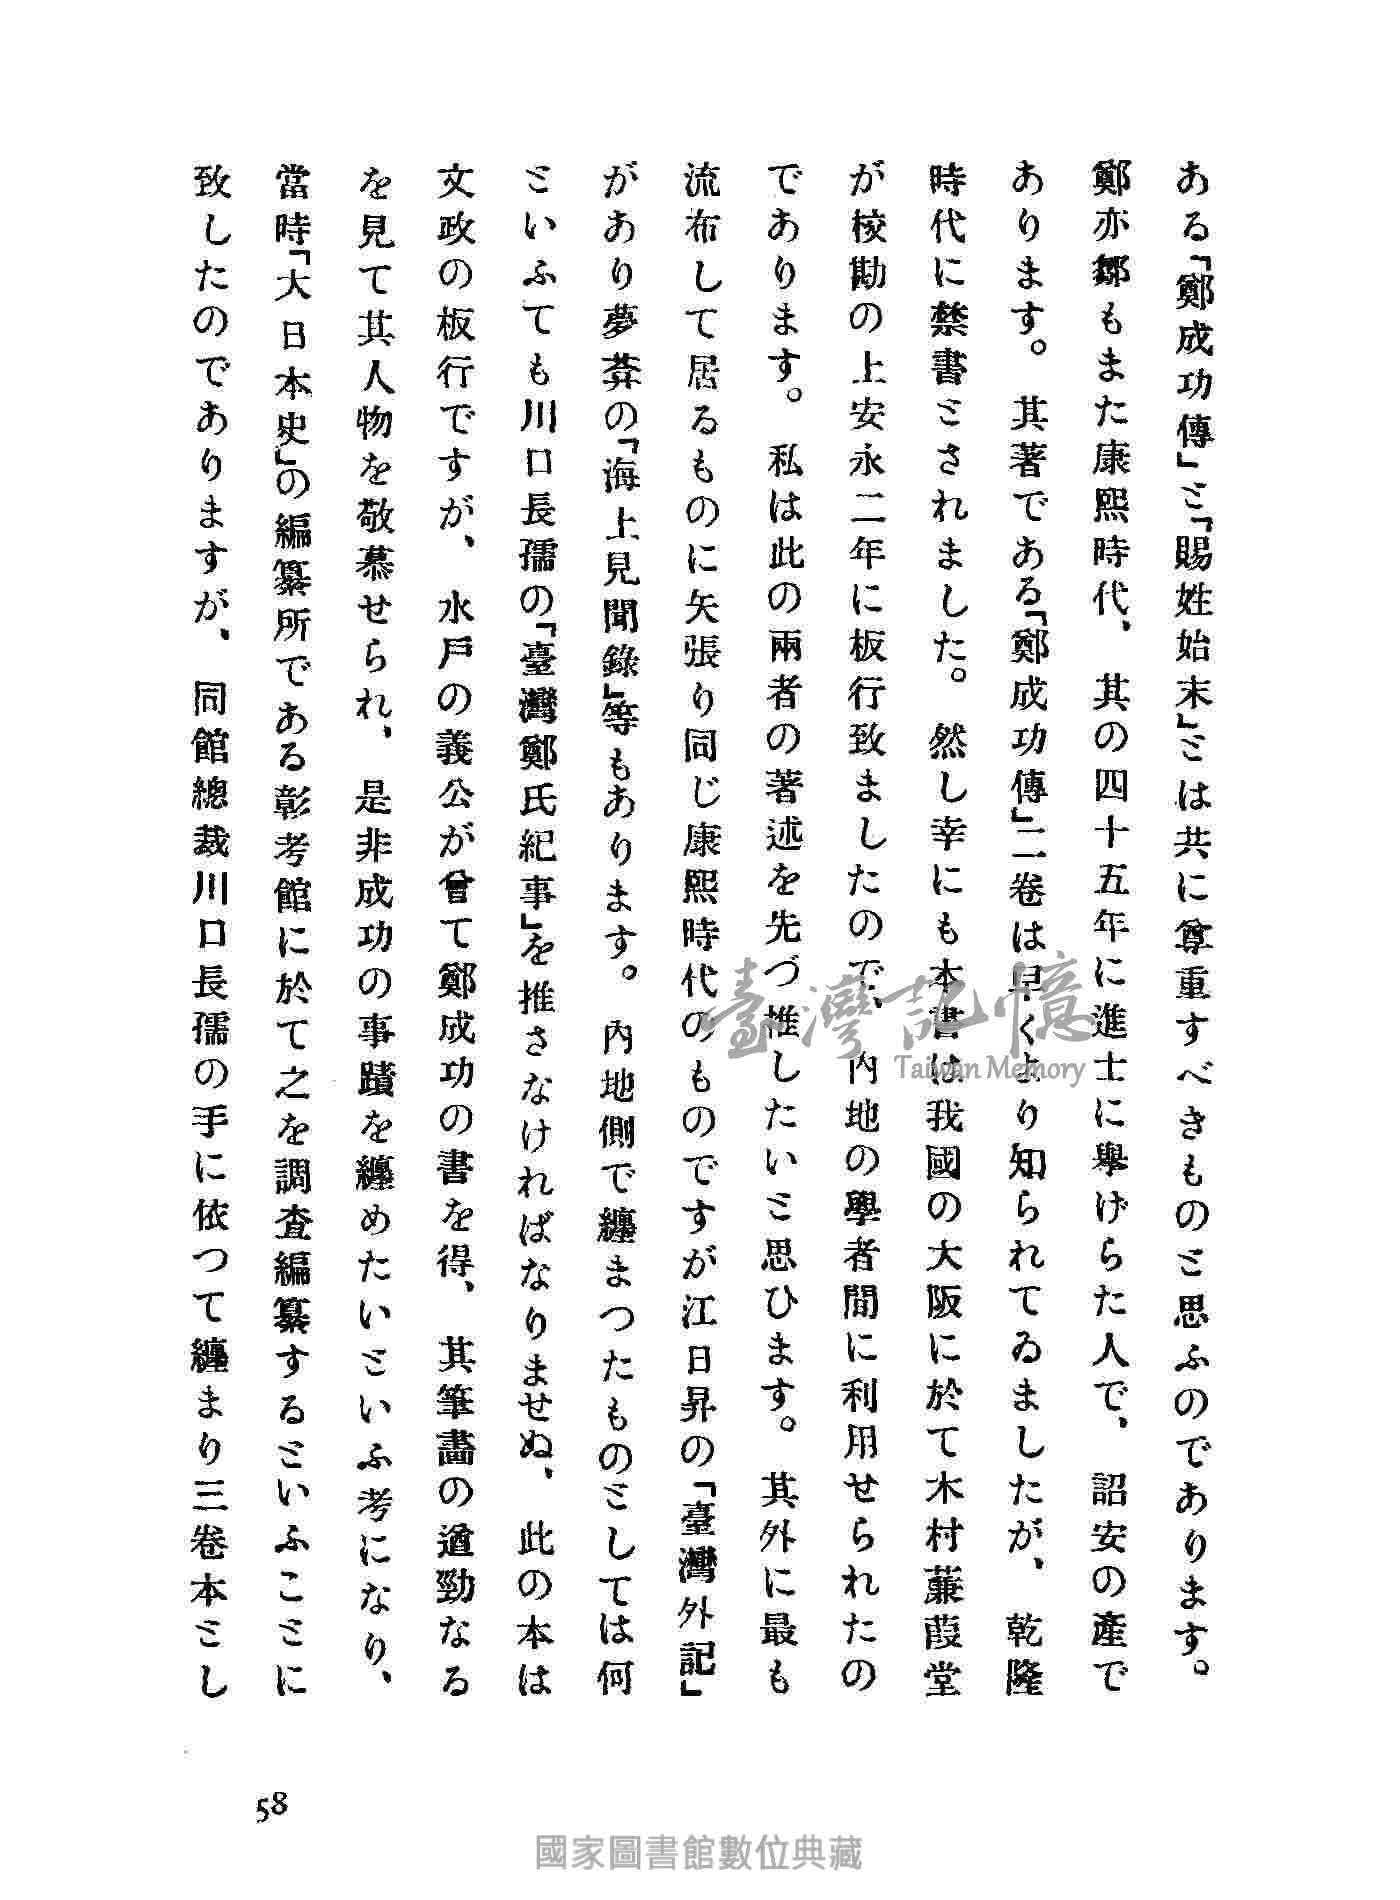 ある「鄭成功傳」と「賜姓始末」とは共に尊重すべきものと思ふのであります。
鄭亦鄒もまた康熙時代、其の四十五年に進士に擧げらた人で、詔安の產で
あります。其著である「鄭成功傳」二卷は早くより知られてゐましたが、乾隆
時代に禁書とされました。然し幸にも本書は我國の大阪に於て木村蒹葭堂
が校勘の上安永二年に板行致ましたので、內地の學者間に利用せられたの
であります。私は此の兩者の著述を先づ推したいと思ひます。其外に最も
流布して居るものに矢張り同じ康熙時代のものですが江日昇の「臺灣外記」
があり夢莽の「海上見聞錄」等もあります。內地側で纏まつたものとしては何
といふても川口長孺の「臺灣鄭氏紀事」を推さなければなりませぬ、此の本は
文政の板行ですが、水戶の義公が曾て鄭成功の書を得、其筆畵の遒勁なる
を見て其人物を敬慕せられ、是非成功の事蹟を纏めたいといふ考になり、
當時「大日本史」の編纂所である彰考館に於て之を調査編纂するといふことに
致したのでありますが、同館總裁川口長孺の手に依つて纏まり三卷本とし
58
臺灣記憶
Taiwan Memory
國家圖書館數位典藏